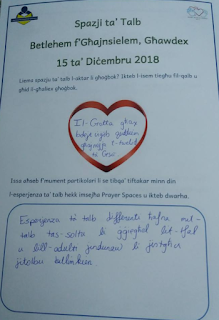 Spazji ta' Talb
Betlehem f'Għajnsielem, Għawdex
15 ta' Diċembru 2018
Liema spazju ta' talb l-aktar li għoġbok? Ikteb l-isem tiegħu fil-qalb u
għid il-għaliex għoġbok.
Il-Grotta għax
Issa aħseb f'mument partikolari li se tibqa' tiftakar minn din
l-esperjenza ta' talb hekk imsejħa Prayer Spaces u ikteb dwarha.
Esperjenza ta' talb differenti ħafna mit-
talb tas-soltu li jgiegħel lit-tfal
u lill-adulti jindunaw li jistgħu
jitolbu